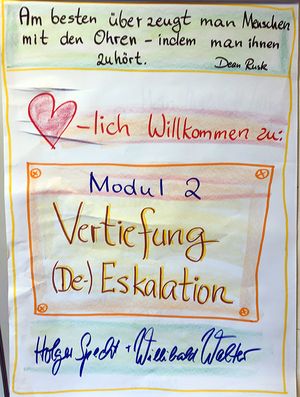 Am besten überzeugt man Menschen
mit den Ohren – indem man ihnen
zuhört.
Dean Rusk
-lich Willkommen zu:
Modul 2
Vertiefung
(De-) Eskalation
Holger Specht + Willibald Walter